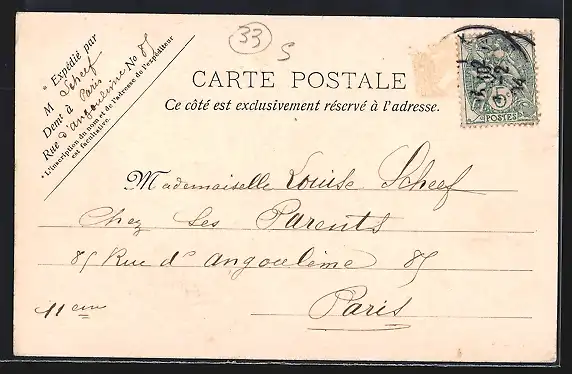 * Expédié par
M Scheef
Demt à Paris
Rue d'angoulème No 85
* L'inscription du nom et de l'adresse de l'expéditeur
est facultative.
33
S
CARTE POSTALE
Ce côté est exclusivement réservé à l'adresse.
5
POSTES
Mademoiselle Louise Scheef
Chez Ses Parents
85 Rue d'angoulème 85
11eme
Paris